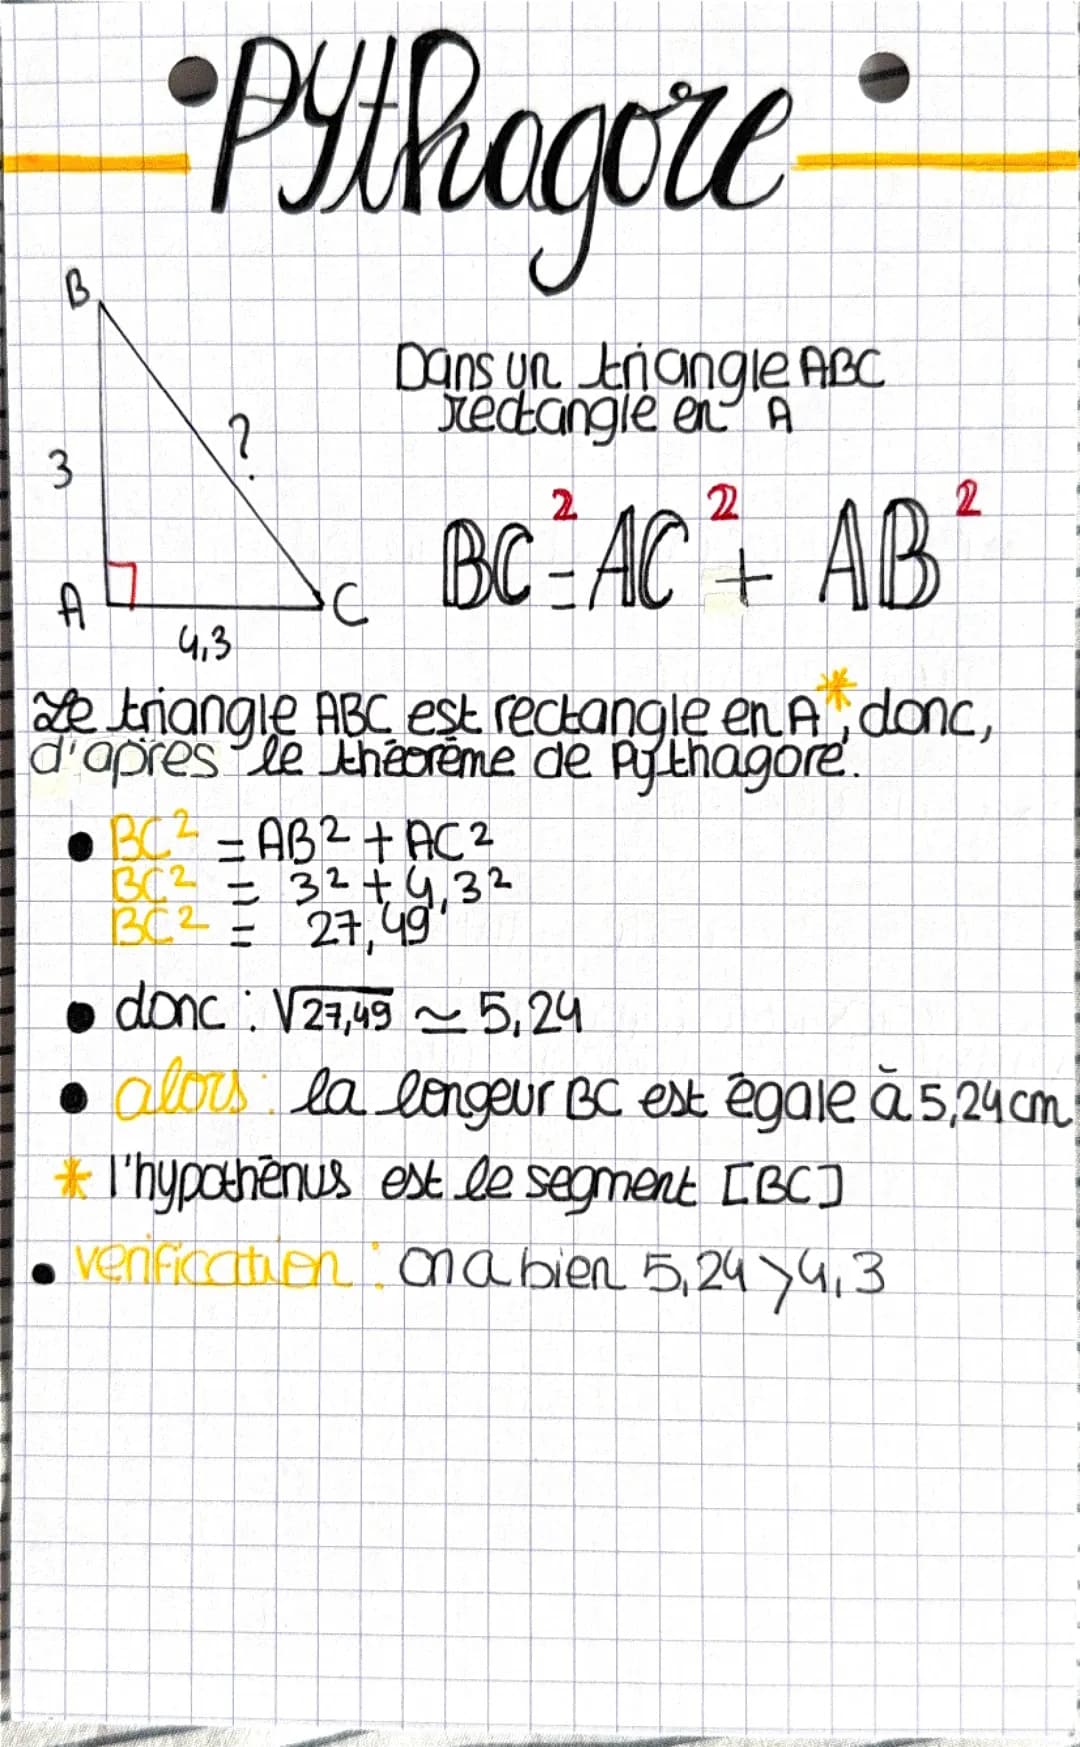 Pythagore
B
Dans un triangle ABC
rectangle en A
?
3
BC²=AC² + AB²
A
C
4,3
Le triangle ABC est rectangle en A*, donc,
d'après le théorème de Pythagore.
● BC² = AB² + AC²
BC² = 3² + 4,3²
BC² = 27,49
● donc : √27,49 ≃ 5,24
● alors : la longeur BC est égale à 5,24 cm
* l'hypothénus est le segment [BC]
● verification : on a bien 5,24 > 4,3